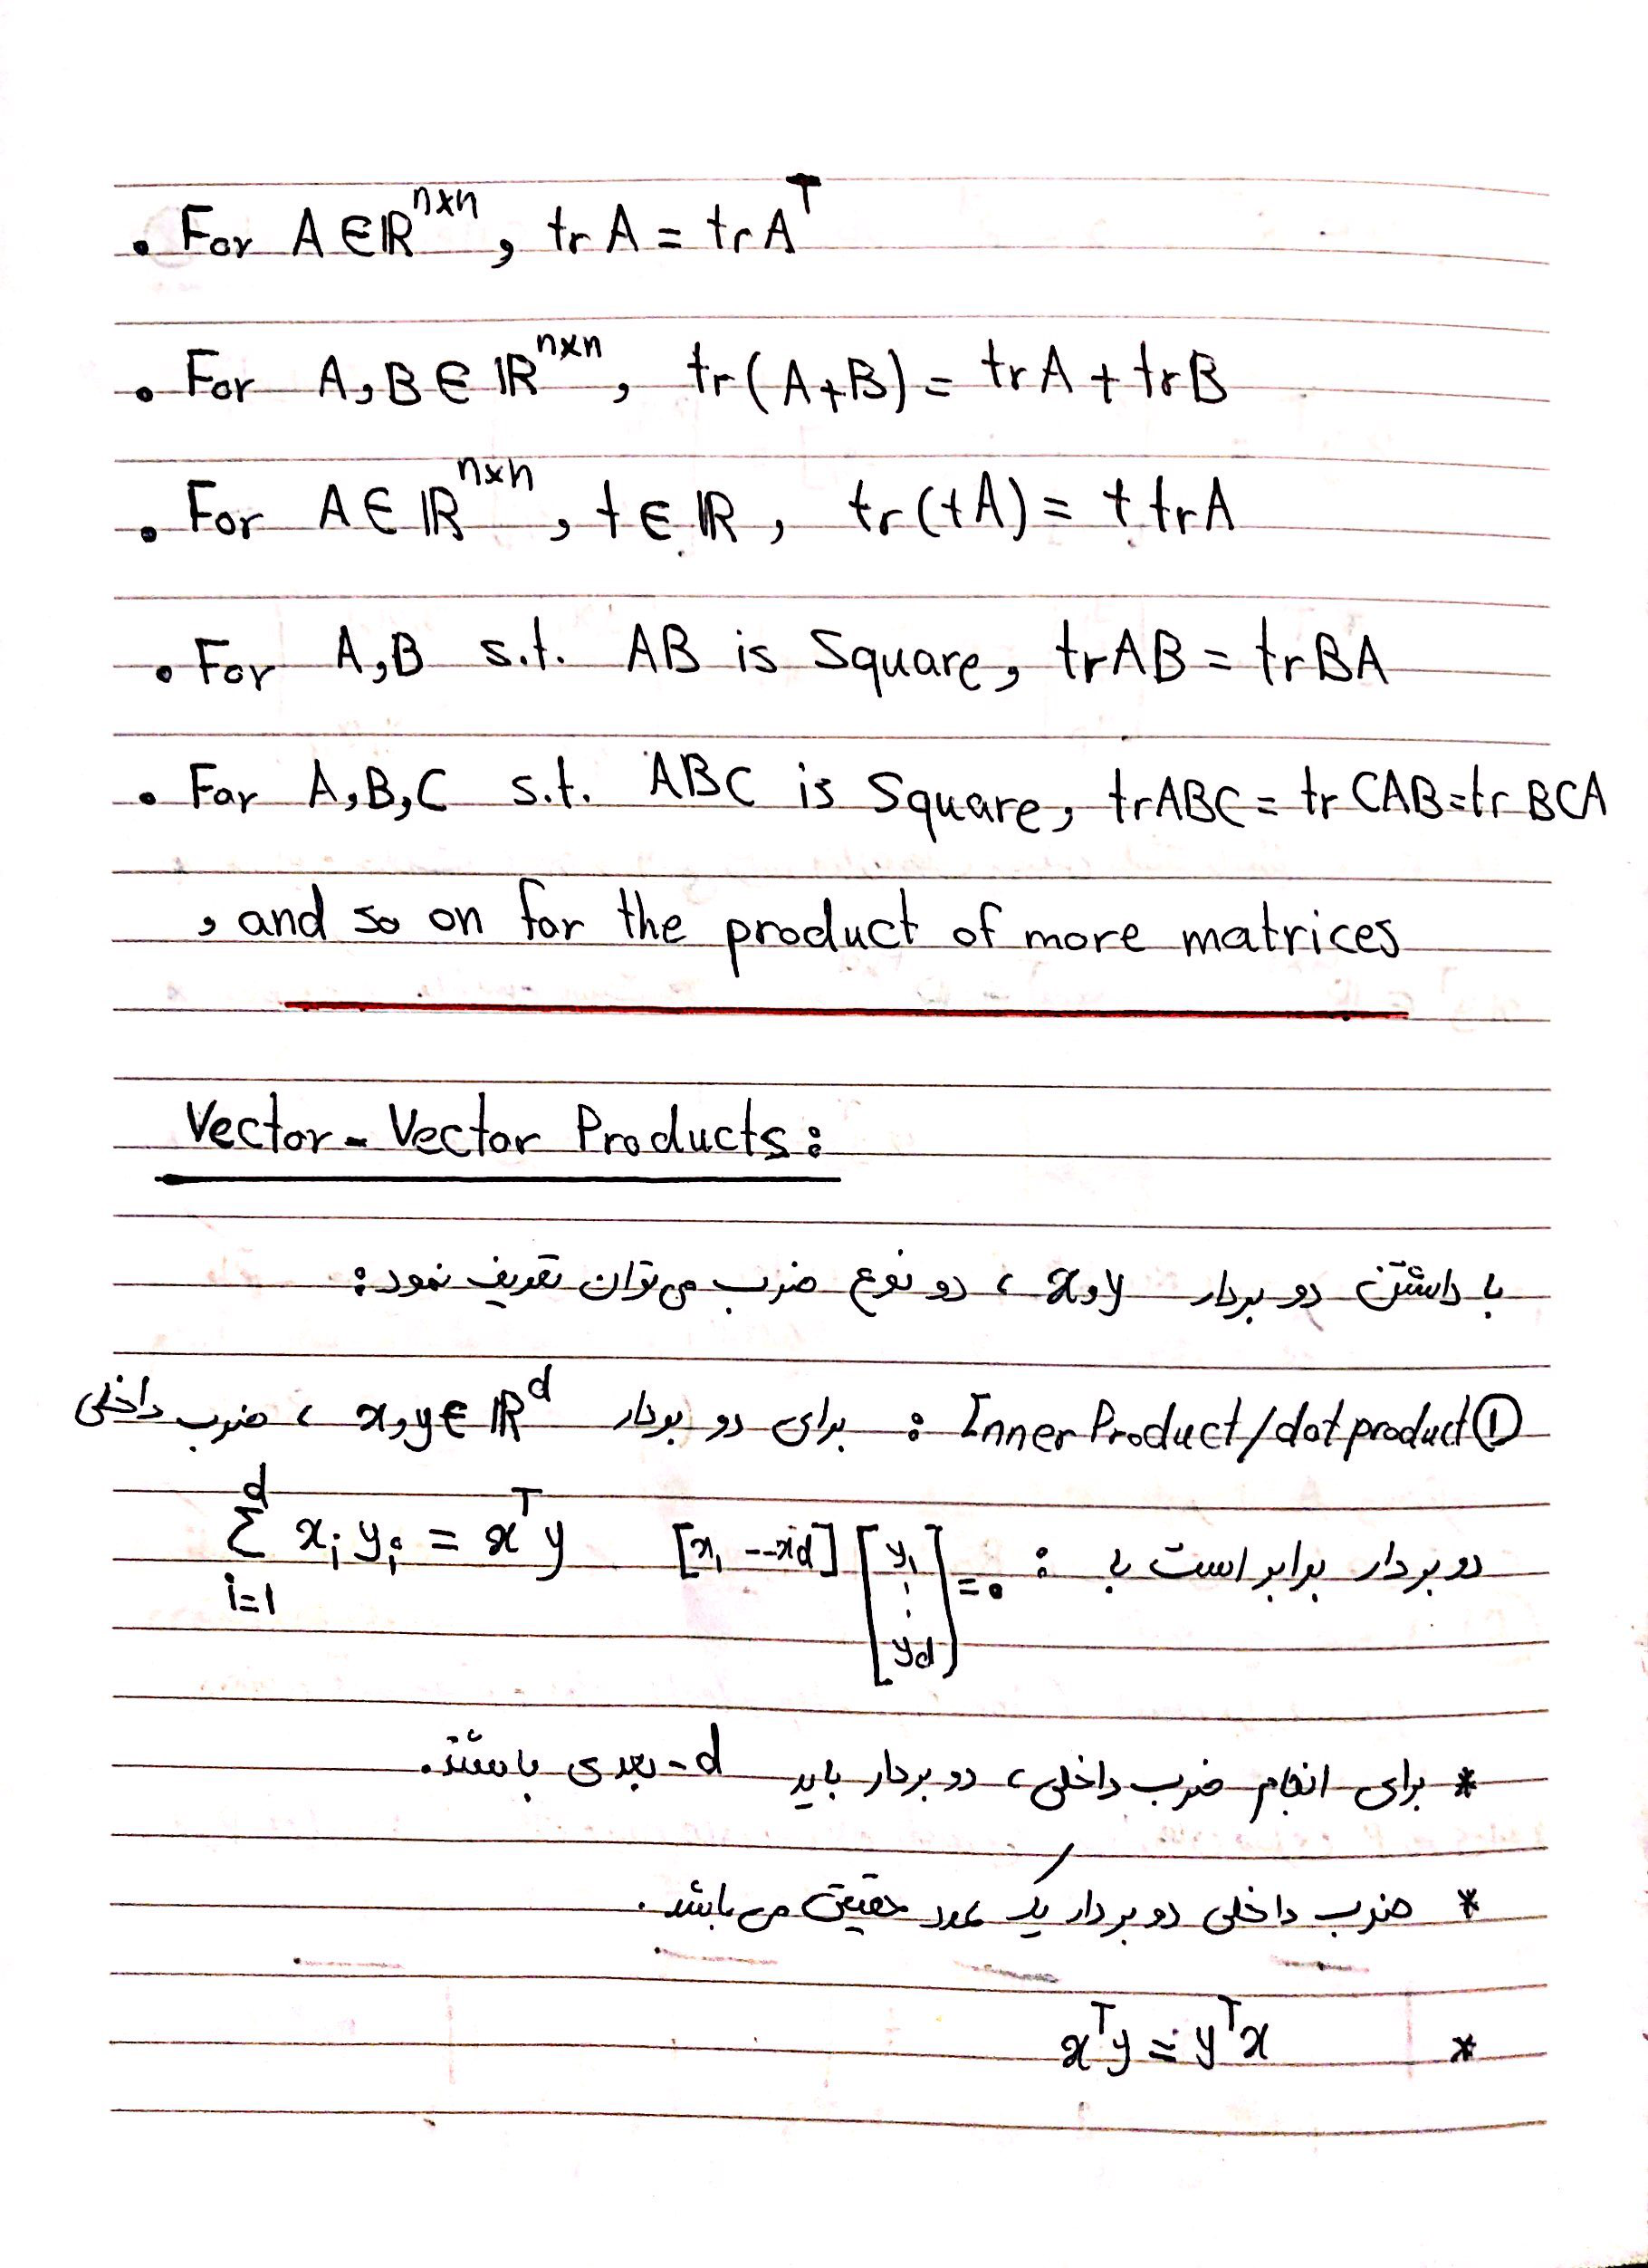 • For A ∈ ℝⁿˣⁿ, tr A = tr Aᵀ
• For A, B ∈ ℝⁿˣⁿ, tr(A+B) = trA + trB
• For A ∈ ℝⁿˣⁿ, t ∈ ℝ, tr(tA) = t trA
• For A,B s.t. AB is Square, trAB = trBA
• For A,B,C s.t. ABC is Square, trABC = tr CAB = tr BCA
, and so on for the product of more matrices
Vector - Vector Products:
با داشتن دو بردار x,y ، دو نوع ضرب می توان تعریف نمود:
① Inner Product/dot product : برای دو بردار x,y ∈ ℝᵈ ، ضرب داخلی
دو بردار برابر است با : [x₁ --- xd] [y₁ ⋮ yd] = • ∑ᵈᵢ₌₁ xᵢ yᵢ = xᵀy
* برای انجام ضرب داخلی، دو بردار باید d-بعدی باشند.
* ضرب داخلی دو بردار یک عدد حقیقی می باشد.
* xᵀy = yᵀx